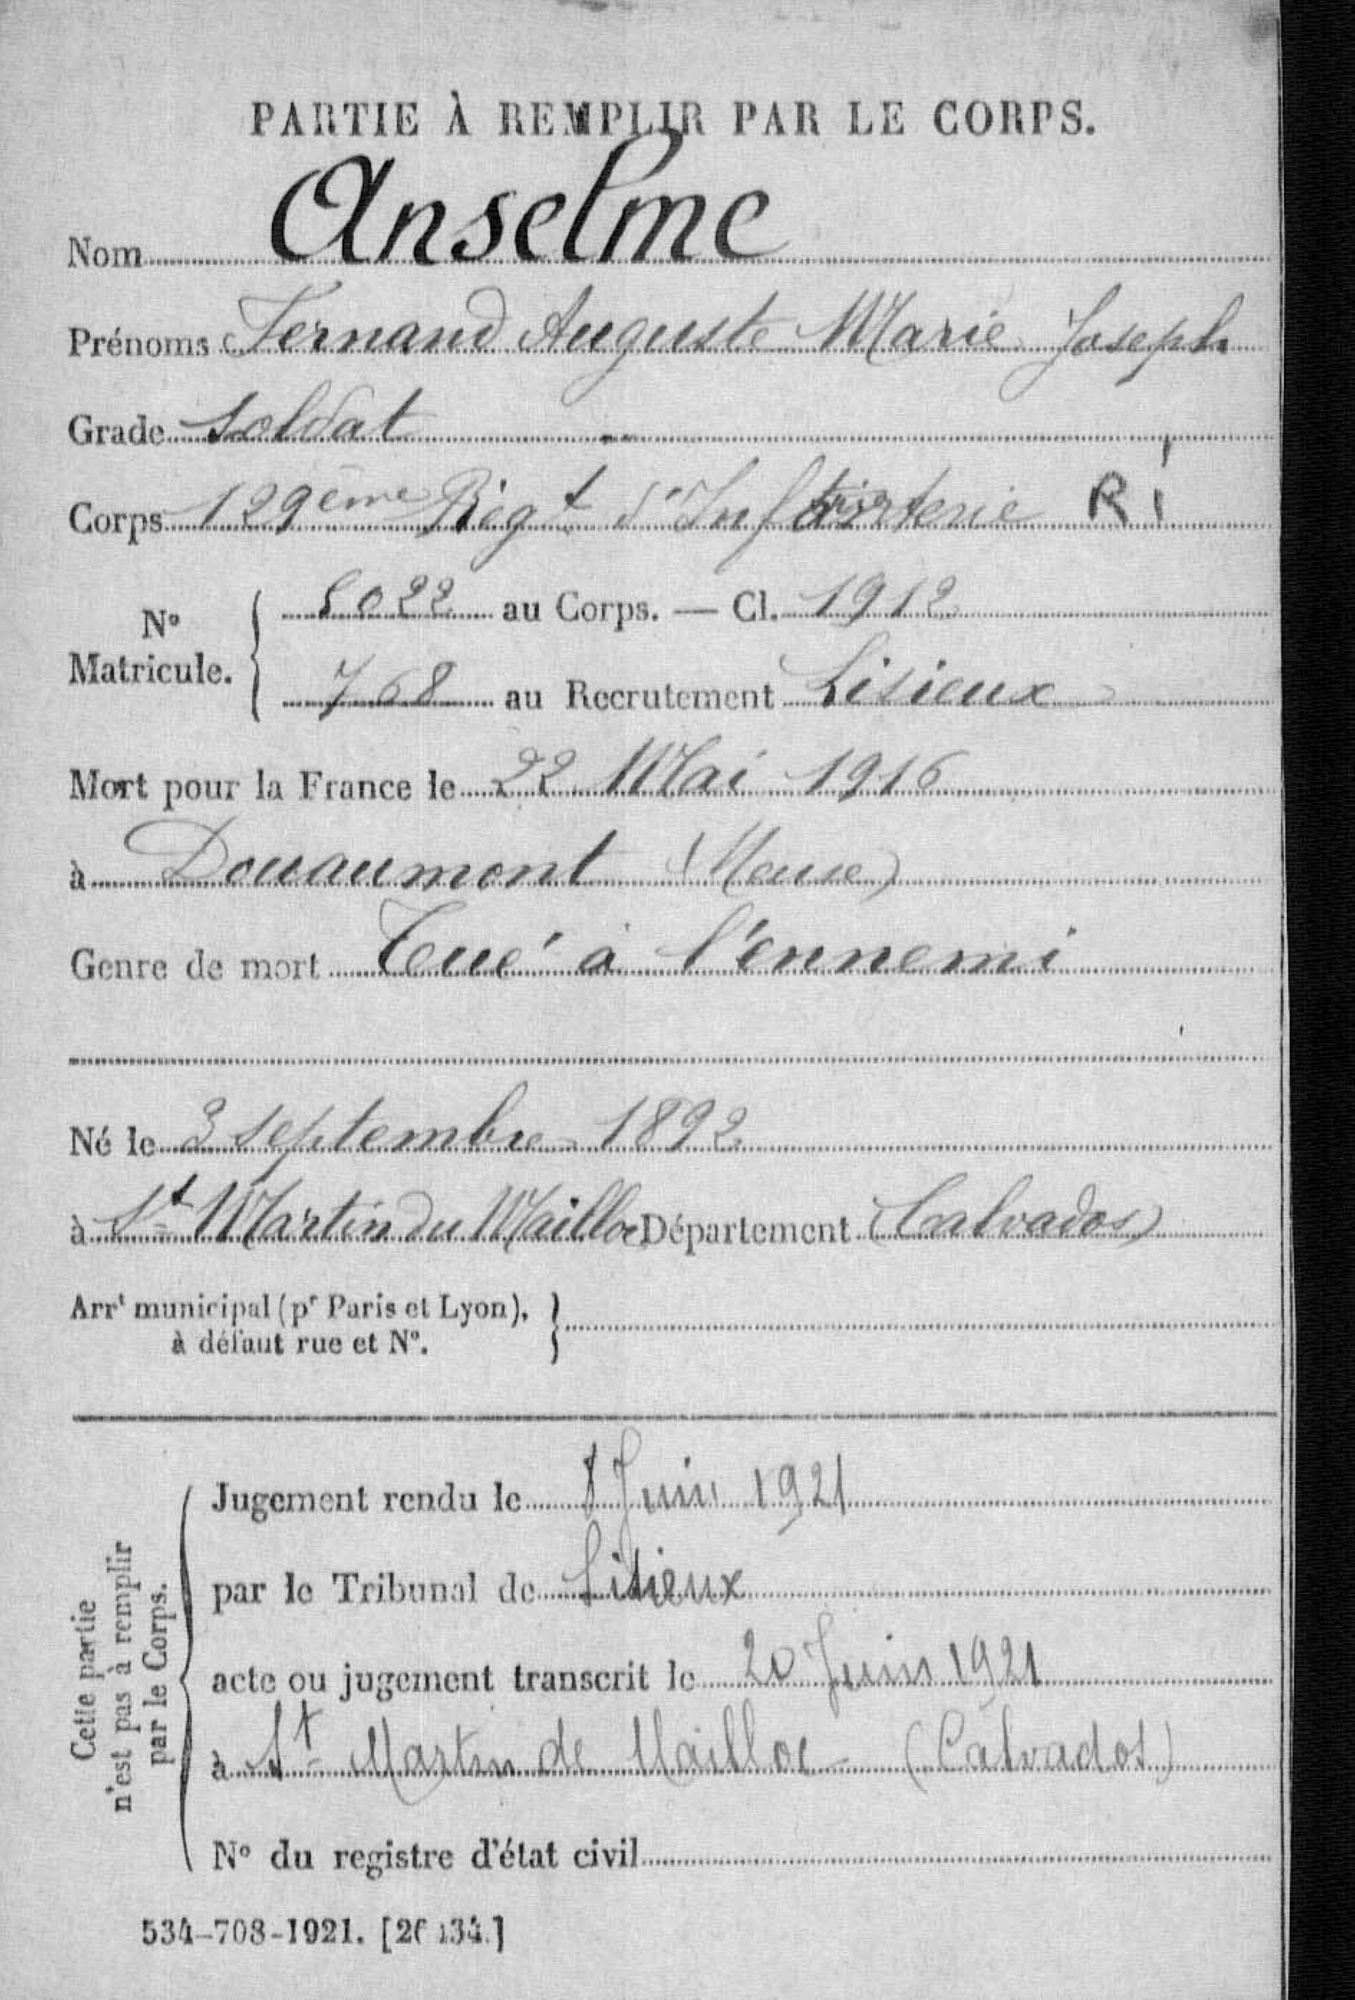 PARTIE À REMPLIR PAR LE CORPS.
Nom Anselme
Prénoms Fernand Auguste Marie Joseph
Grade Soldat
Corps 129ème Régt d'Infanterie RI
N° Matricule. 5022 au Corps. — Cl. 1912
768 au Recrutement Lisieux
Mort pour la France le 22 Mai 1916
à Douaumont (Meuse)
Genre de mort Tué à l'ennemi
Né le 3 septembre 1892
à St Martin du Mailloc Département (Calvados)
Arrt municipal (pr Paris et Lyon),
à défaut rue et N°.
Cette partie
n'est pas à remplir
par le Corps.
Jugement rendu le 8 Juin 1921
par le Tribunal de Lisieux
acte ou jugement transcrit le 20 Juin 1921
à St Martin de Mailloc (Calvados)
N° du registre d'état civil
534-708-1921.